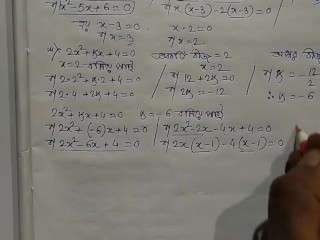 বা x²-5x+6=0) বা x(x-3)-2(x-3)=0
হয় x-3=0 x-2=0
বা x=3 বা x=2
2x²+kx+4=0 বীজ=2
x=2 বসিয়ে পাই x=2
বা 2·2²+k·2+4=0 বা 12+2k=0 বা k=-12/2
বা 2·4+2k+4=0 বা 2k=-12 ∴ k=-6
2x²+kx+4=0 k=-6 বসিয়ে পাই
বা 2x²+(-6)x+4=0 বা 2x²-2x-4x+4=0
বা 2x²-6x+4=0 বা 2x(x-1)-4(x-1)=0